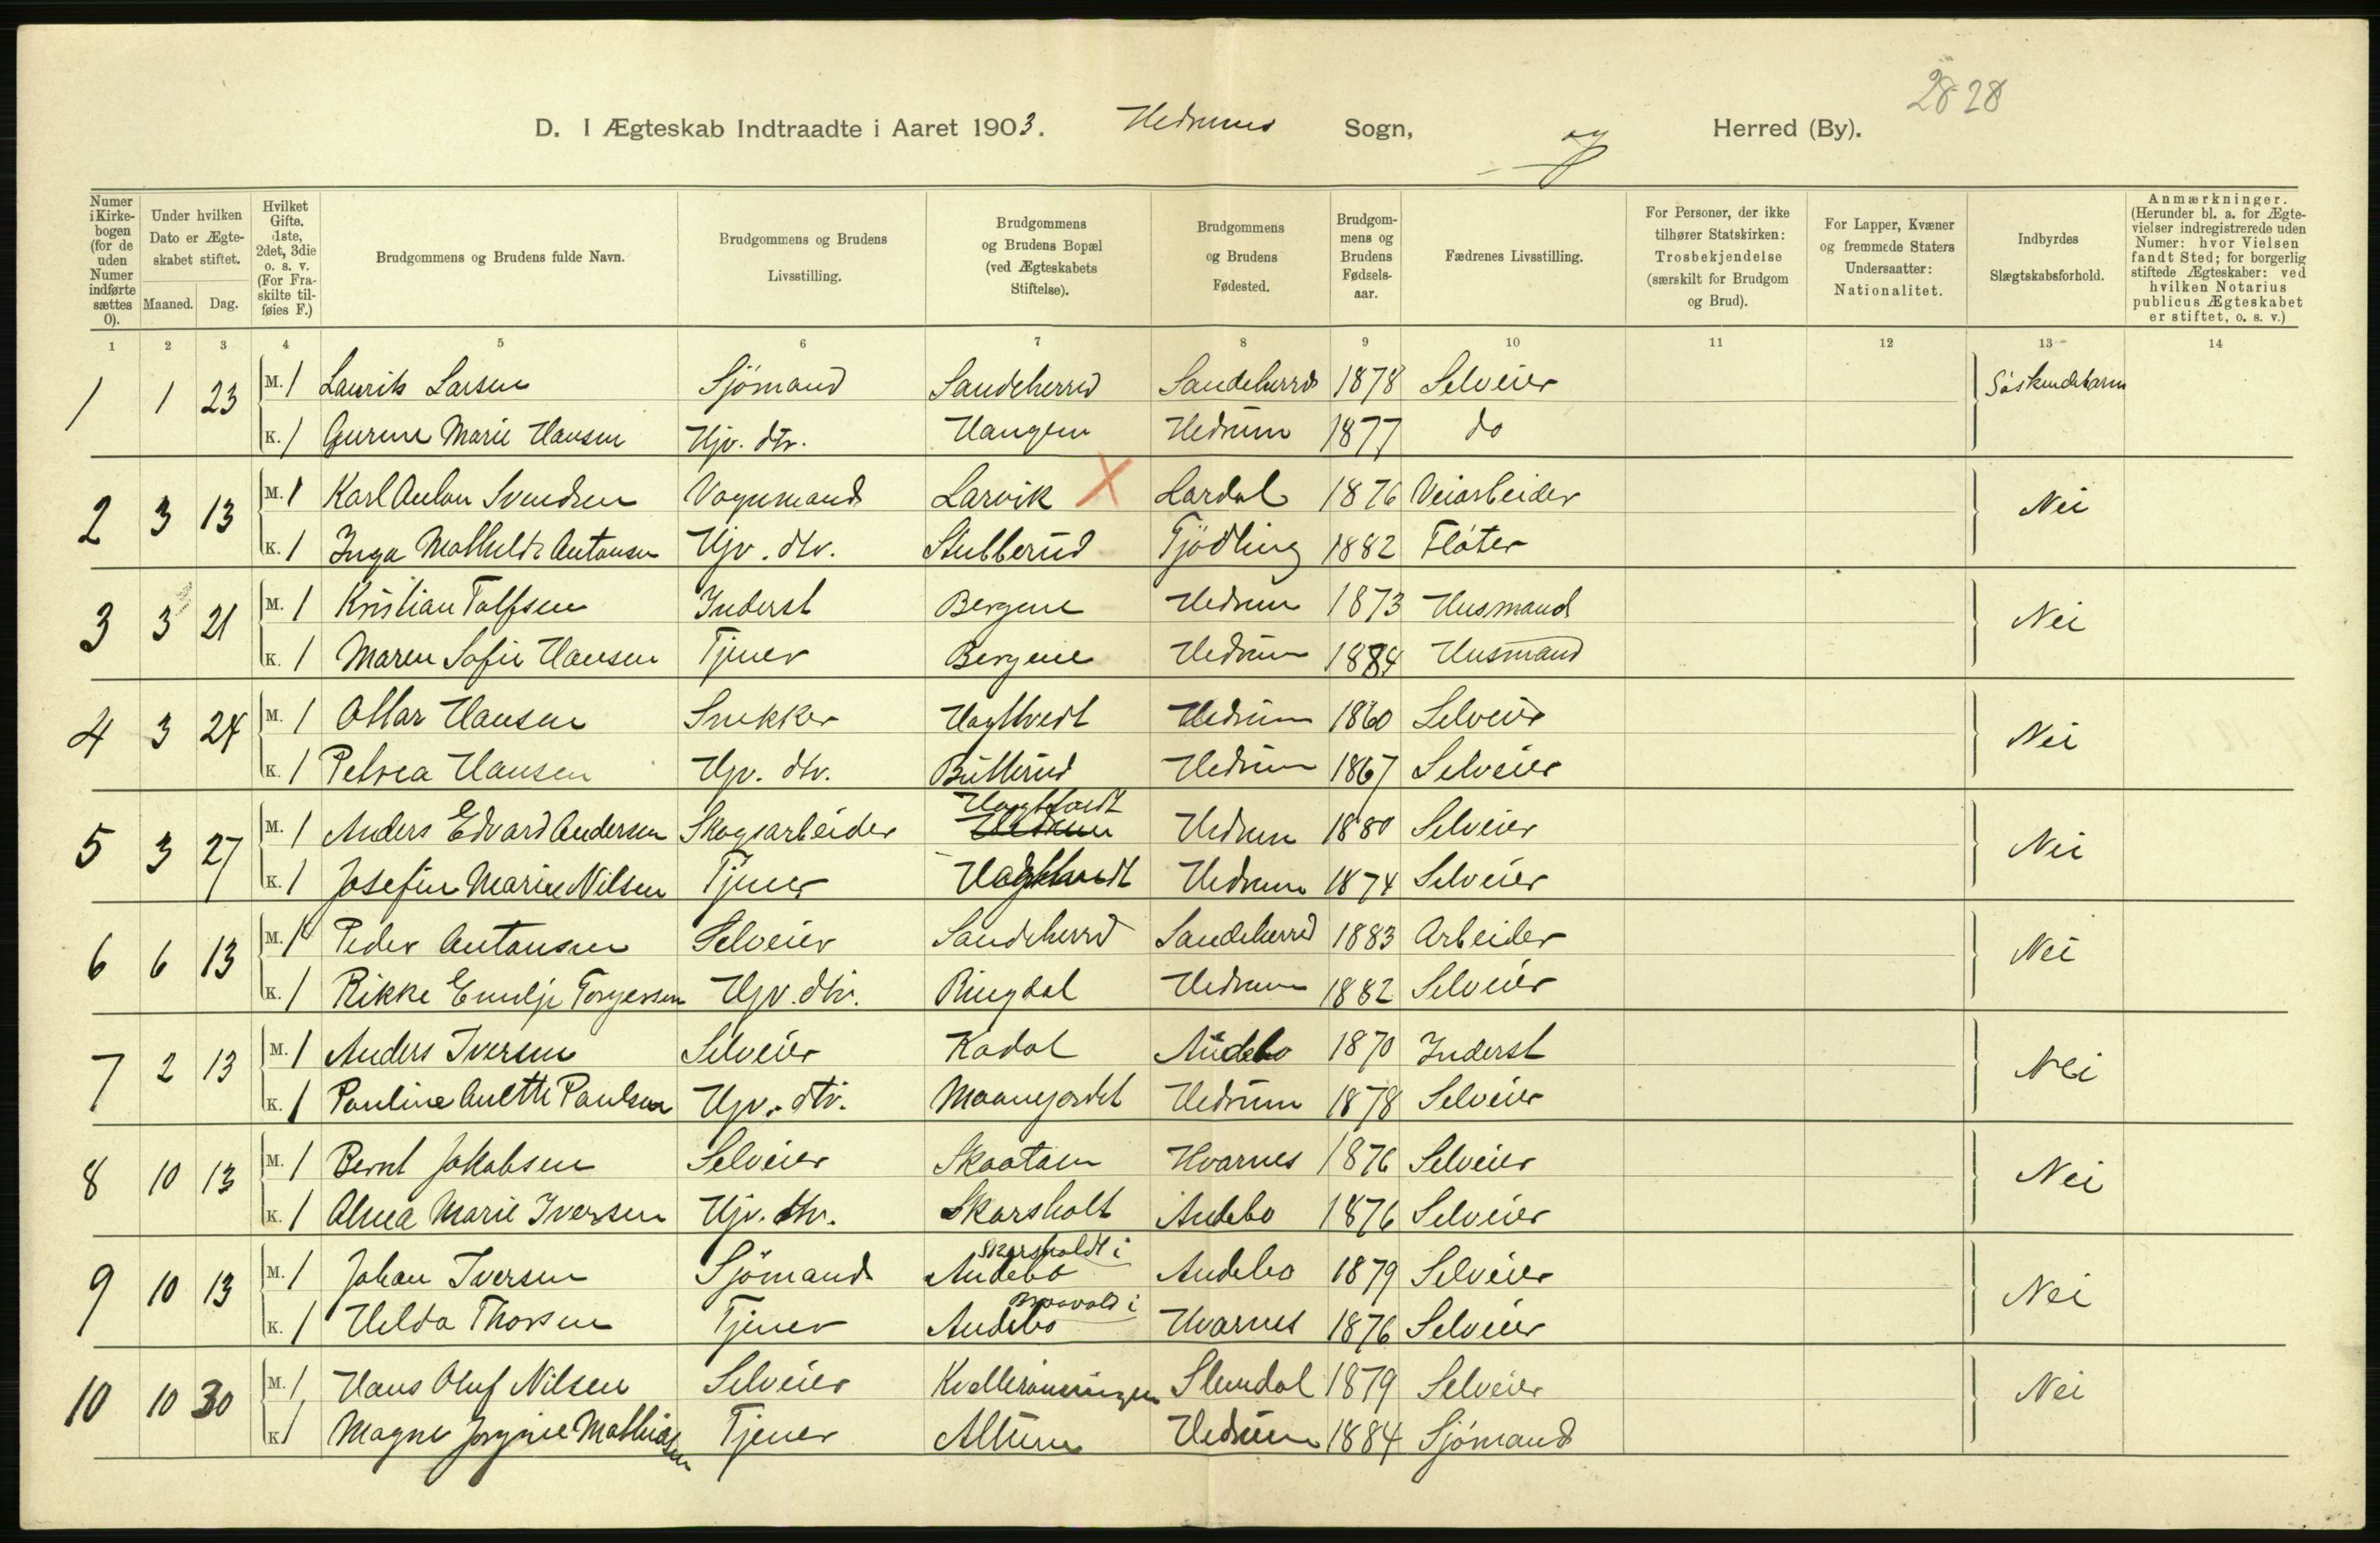 28 28
D. I Ægteskab Indtraadte i Aaret 1903. Hedrums Sogn, og Herred (By).
Numer i Kirkebogen (for de uden Numer indførte sættes 0).
Under hvilken Dato er Ægteskabet stiftet.
Maaned. Dag.
Hvilket Gifte. 1ste, 2det, 3die o. s. v. (For Fraskilte tilføies F.)
Brudgommens og Brudens fulde Navn.
Brudgommens og Brudens Livsstilling.
Brudgommens og Brudens Bopæl (ved Ægteskabets Stiftelse).
Brudgommens og Brudens Fødested.
Brudgommens og Brudens Fødselsaar.
Fædrenes Livsstilling.
For Personer, der ikke tilhører Statskirken: Trosbekjendelse (særskilt for Brudgom og Brud).
For Lapper, Kvæner og fremmede Staters Undersaatter: Nationalitet.
Indbyrdes Slægtskabsforhold.
Anmærkninger. (Herunder bl. a. for Ægtevielser indregistrerede uden Numer: hvor Vielsen fandt Sted; for borgerlig stiftede Ægteskaber: ved hvilken Notarius publicus Ægteskabet er stiftet, o. s. v.)
1 2 3 4 5 6 7 8 9 10 11 12 13 14
1 1 23 M. 1 Laurits Larsen Sjömand Sandeherred Sandeherred 1878 Selveier Söskendebarn
K. 1 Gurine Marie Hansen Hjv. dtr. Haugen Hedrum 1877 do
2 3 13 M. 1 Karl Anton Svendsen Vognmand Larvik X Lardal 1876 Veiarbeider Nei
K. 1 Inga Mathilde Antonsen Hjv. dtr. Stubberud Tjödling 1882 Flöter
3 3 21 M. 1 Kristian Tolfsen Inderst Bergene Hedrum 1873 Husmand Nei
K. 1 Maren Sofie Hansen Tjener Bergene Hedrum 1884 Husmand
4 3 24 M. 1 Ottar Hansen Snekker Hagtvedt Hedrum 1860 Selveier Nei
K. 1 Petrea Hansen Hjv. dtr. Bütterud Hedrum 1867 Selveier
5 3 27 M. 1 Anders Edvard Andersen Skogsarbeider Hagtvedt Hedrum Hedrum 1880 Selveier Nei
K. 1 Josefine Marie Nilsen Tjener Hagtvedt Hedrum 1874 Selveier
6 6 13 M. 1 Peder Antonsen Selveier Sandeherred Sandeherred 1883 Arbeider Nei
K. 1 Rikke Emilje Torgersen Hjv. dtr. Ringdal Hedrum 1882 Selveier
7 2 13 M. 1 Anders Iversen Selveier Kadal Andebo 1870 Inderst Nei
K. 1 Pauline Anette Paulsen Hjv. dtr. Maanejordet Hedrum 1878 Selveier
8 10 13 M. 1 Bernt Jakobsen Selveier Skaatan Hvarnes 1876 Selveier Nei
K. 1 Alma Marie Iversen Hjv. dtr. Skarsholt Andebo 1876 Selveier
9 10 13 M. 1 Johan Iversen Sjömand Skarsholdt i Andebo Andebo 1879 Selveier Nei
K. 1 Hilda Thorsen Tjener i Andebo Hvarnes 1876 Selveier
10 10 30 M. 1 Hans Oluf Nilsen Selveier Kvelleröningen Slemdal 1879 Selveier Nei
K. 1 Magne Jorgine Mathisen Tjener Hedrum 1884 Sjömand